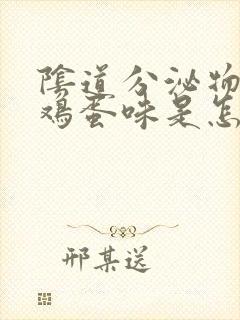 陰道分泌物
鸡蛋味是怎
邢某送